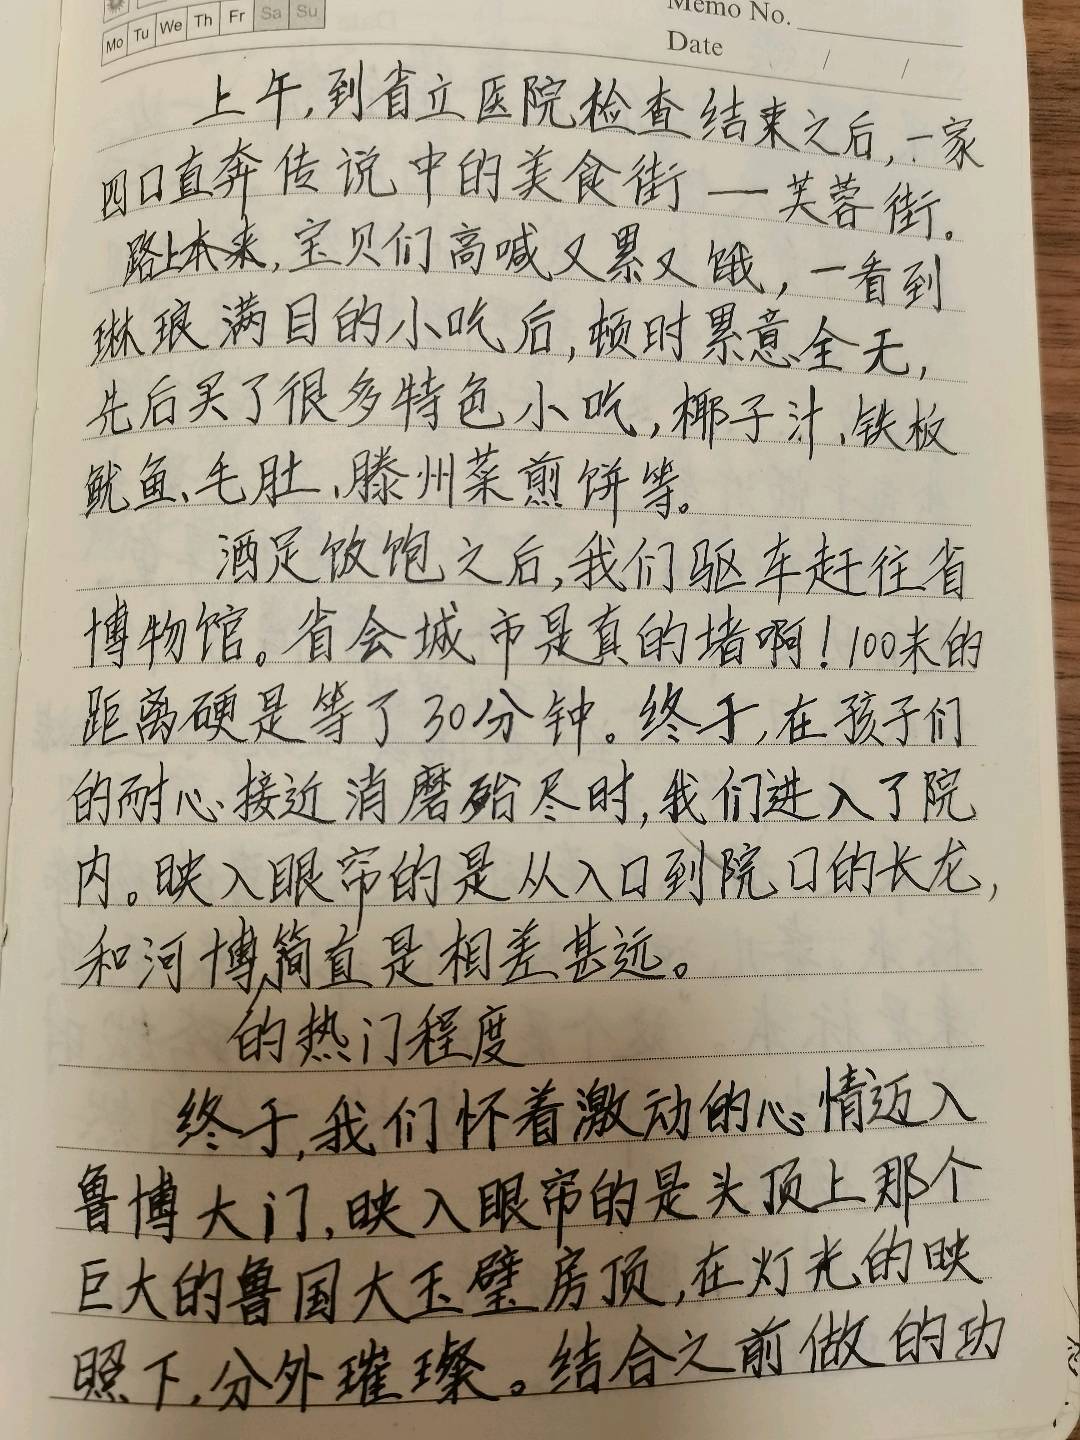 Mo Tu We Th Fr Sa Su
Memo No.
Date / /
上午,到省立医院检查结束之后,一家
四口直奔传说中的美食街——芙蓉街。
路上本来,宝贝们高喊又累又饿,一看到
琳琅满目的小吃后,顿时累意全无,
先后买了很多特色小吃,椰子汁、铁板
鱿鱼、毛肚、滕州菜煎饼等。
酒足饭饱之后,我们驱车赶往省
博物馆。省会城市是真的堵啊!100来的
距离硬是等了30分钟。终于,在孩子们
的耐心接近消磨殆尽时,我们进入了院
内。映入眼帘的是从入口到院口的长龙,
和河博简直是相差甚远。
的热门程度
终于,我们怀着激动的心情迈入
鲁博大门,映入眼帘的是头顶上那个
巨大的鲁国大玉璧房顶,在灯光的映
照下,分外璀璨。结合之前做的功